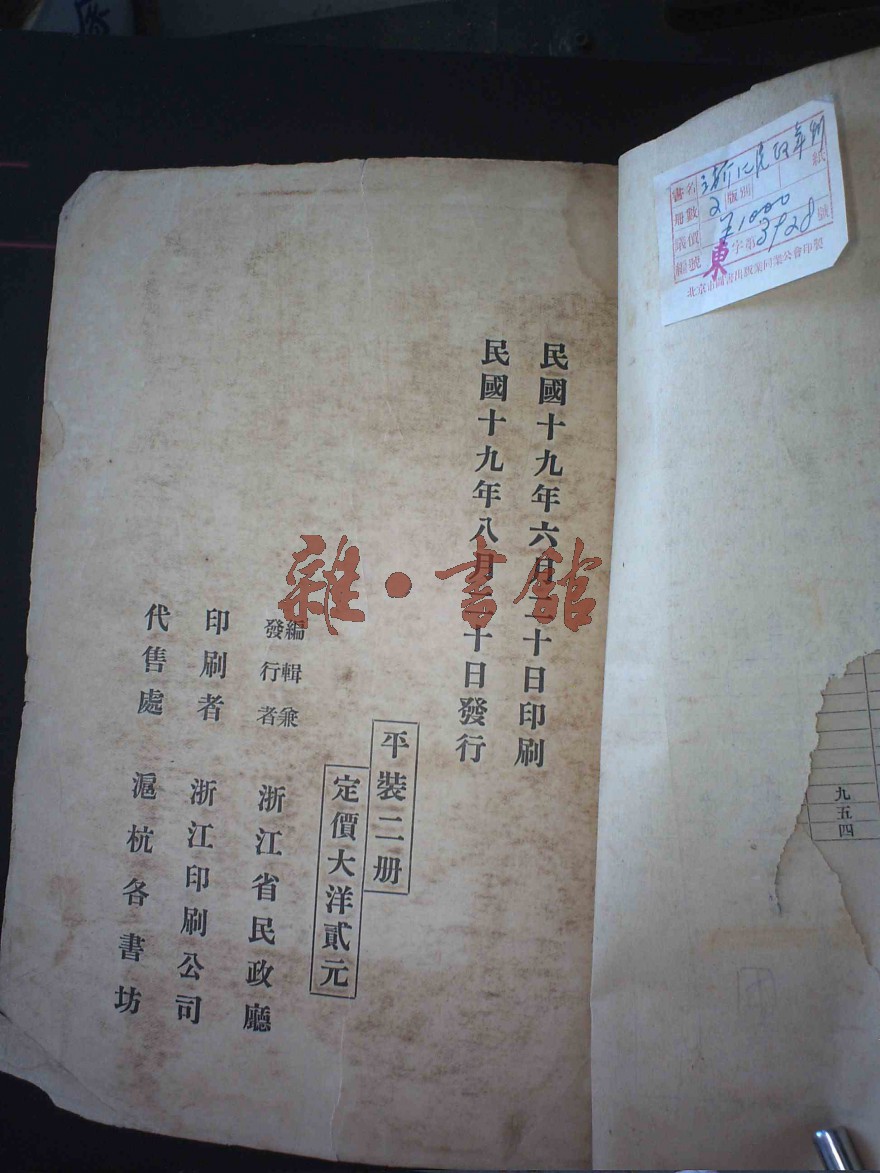 民國十九年六月二十日印刷
民國十九年八月二十日發行
平裝二册
定價大洋貳元
編輯兼
發行者 浙江省民政廳
印刷者 浙江印刷公司
代售處 滬杭各書坊
雜·書館
書名 浙江民政年刊
册數 2 版別 紙
議價 ¥1000
編號 東 字第3928號
北京市圖書出版業同業公會印製
九五四